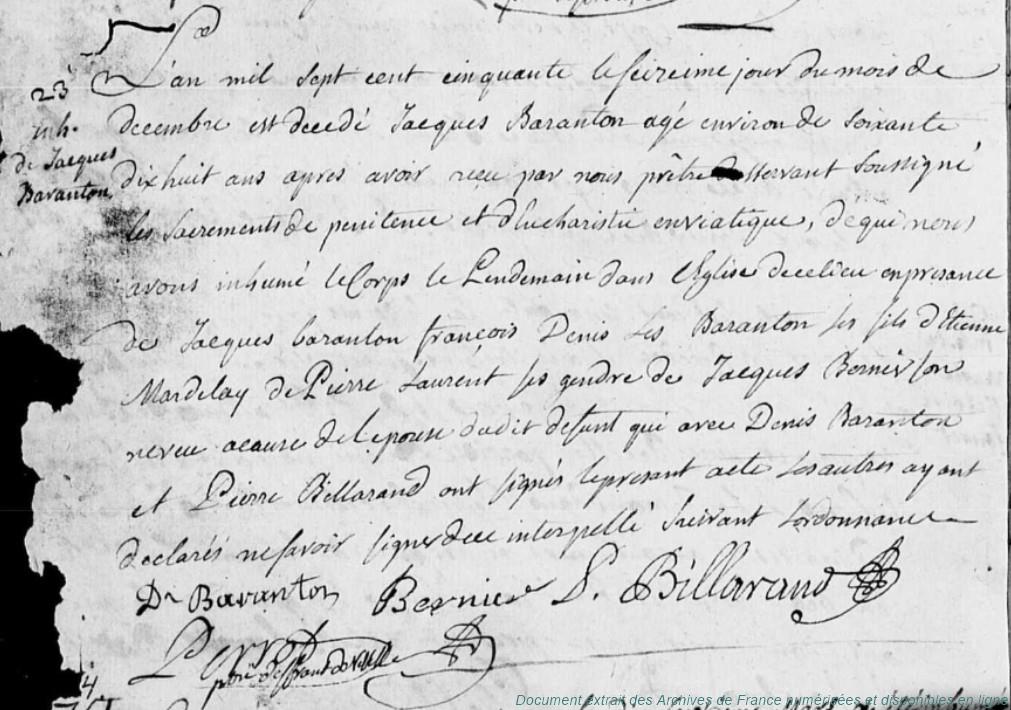 23e
inh.
de Jacques
Baranton
L'an mil sept cent cinquante le seizeime jour du mois de
decembre est decedé Jacques Baranton agé environ de Soixante
dix huit ans apres avoir reçu par nous prêtre desservant Soussigné
les Sacrements de penitence et d'Eucharistie en viatique, de qui nous
avons inhumé le Corps le Lendemain dans l'Eglise de ce lieu en presance
de Jacques baranton francois Denis Les Baranton ses fils d'Etienne
Mardelay de Pierre Laurent ses gendre de Jacques Bernier son
neveu a cause de l'epouse dudit defunt qui avec Denis Baranton
et Pierre Billaraud ont signés le presant acte Les autres ayant
declarés ne savoir signer de ce interpellé Suivant Lordonnance
Ds Baranton Bernier P. Billaraud
Perrot
ptre desservant de
Document extrait des Archives de France numérisées et disponibles en ligne